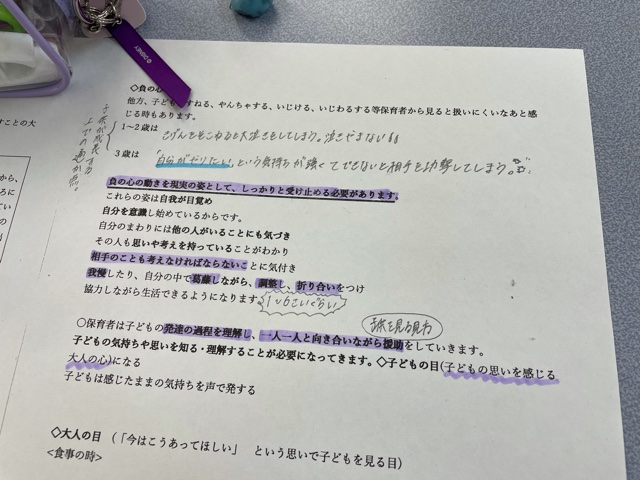 © DISNEY
◇負の心
他方、子ど すねる、やんちゃする、いじける、いじわるする等保育者から見ると扱いにくいなあと感
じる時もあります。
1~2歳は きげんをそこねると大泣きをしてしまう。泣きやまない
3歳は 「自分がやりたい」という気持ちが強くてできないと相手を攻撃してしまう。
子供が成長する
上での通か点。
すことの大
から、
ろに
てい
負の心の動きを現実の姿として、しっかりと受け止める必要があります。
これらの姿は自我が目覚め
自分を意識し始めているからです。
自分のまわりには他の人がいることにも気づき
その人も思いや考えを持っていることがわかり
相手のことも考えなければならないことに気付き
我慢したり、自分の中で葛藤しながら、調整し、折り合いをつけ
協力しながら生活できるようになります。
5~6さいぐらい
○保育者は子どもの発達の過程を理解し、一人一人と向き合いながら援助をしていきます。
子どもの気持ちや思いを知る・理解することが必要になってきます。◇子どもの目(子どもの思いを感じる
大人の心)になる
子どもは感じたままの気持ちを声で発する
◇大人の目 (「今はこうあってほしい」 という思いで子どもを見る目)
<食事の時>